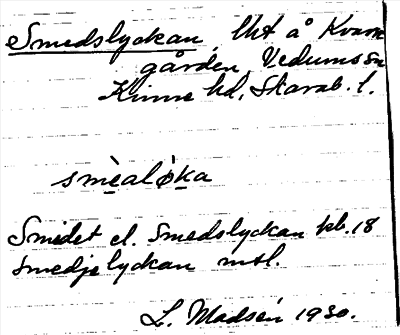 Smedslyckan, lht å Kvarn
gården, Vedums sn
Kinne hd, Skarab. l.
smèalø̀ka
Smedet el. Smedslyckan kb. 18
Smedjelyckan msl.
L. Madsén 1930.